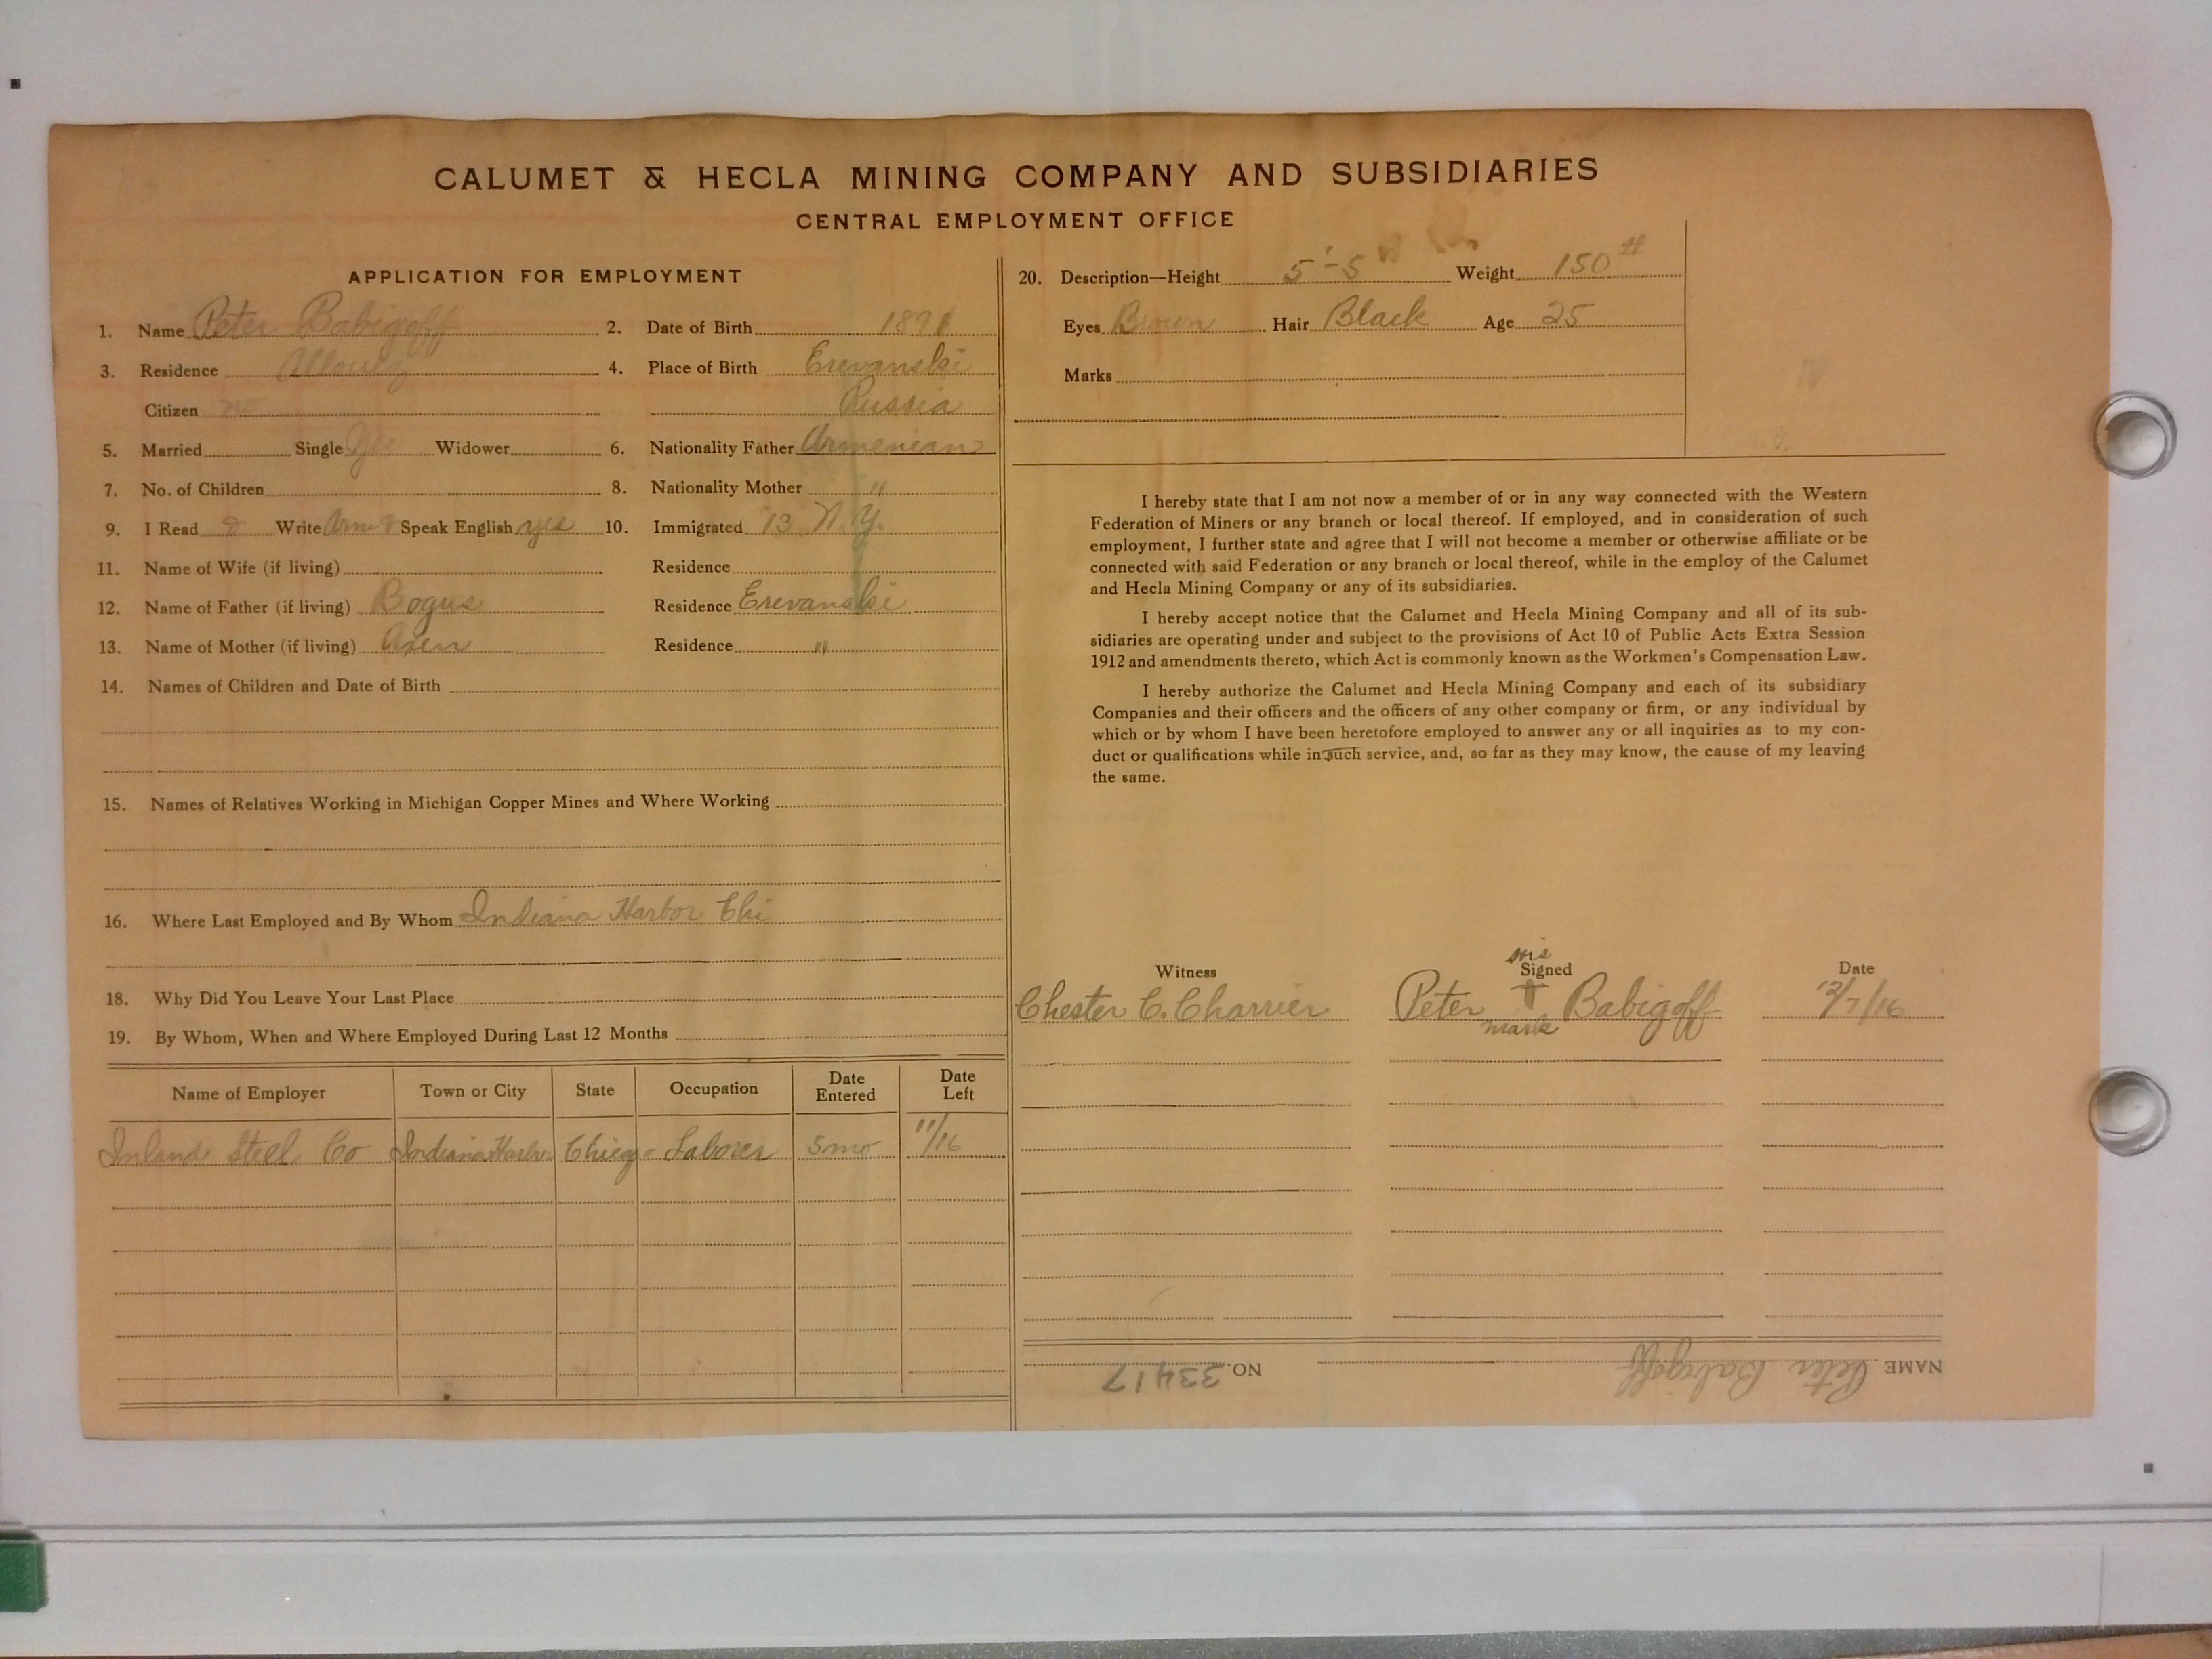 CALUMET & HECLA MINING COMPANY AND SUBSIDIARIES
CENTRAL EMPLOYMENT OFFICE
APPLICATION FOR EMPLOYMENT
1. Name Peter Babigoff 2. Date of Birth 1891
3. Residence Allouez 4. Place of Birth Erevanski
Citizen no Russia
5. Married Single Yes Widower 6. Nationality Father Armenian
7. No. of Children 8. Nationality Mother "
9. I Read Write Speak English yes 10. Immigrated '13 N.Y.
11. Name of Wife (if living) Residence
12. Name of Father (if living) Bogus Residence Erevanski
13. Name of Mother (if living) Residence "
14. Names of Children and Date of Birth
15. Names of Relatives Working in Michigan Copper Mines and Where Working
16. Where Last Employed and By Whom Indiana Harbor Chi
18. Why Did You Leave Your Last Place
19. By Whom, When and Where Employed During Last 12 Months
Name of Employer Town or City State Occupation Date Entered Date Left
Inland Steel Co Indiana Harbor Chicago Laborer 5 mo 11/16
20. Description—Height 5'-5" Weight 150 #
Eyes Brown Hair Black Age 25
Marks
I hereby state that I am not now a member of or in any way connected with the Western
Federation of Miners or any branch or local thereof. If employed, and in consideration of such
employment, I further state and agree that I will not become a member or otherwise affiliate or be
connected with said Federation or any branch or local thereof, while in the employ of the Calumet
and Hecla Mining Company or any of its subsidiaries.
I hereby accept notice that the Calumet and Hecla Mining Company and all of its sub-
sidiaries are operating under and subject to the provisions of Act 10 of Public Acts Extra Session
1912 and amendments thereto, which Act is commonly known as the Workmen's Compensation Law.
I hereby authorize the Calumet and Hecla Mining Company and each of its subsidiary
Companies and their officers and the officers of any other company or firm, or any individual by
which or by whom I have been heretofore employed to answer any or all inquiries as to my con-
duct or qualifications while in such service, and, so far as they may know, the cause of my leaving
the same.
his
Witness Signed Date
Chester C. Charrier Peter + Babigoff 12/7/16
mark
NAME Peter Babigoff NO. 33417